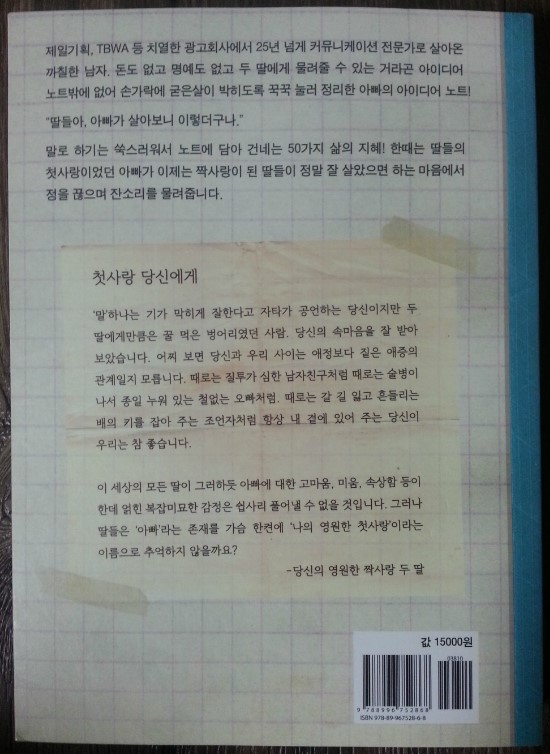 제일기획, TBWA 등 치열한 광고회사에서 25년 넘게 커뮤니케이션 전문가로 살아온
까칠한 남자. 돈도 없고 명예도 없고 두 딸에게 물려줄 수 있는 거라곤 아이디어
노트밖에 없어 손가락에 굳은살이 박히도록 꾹꾹 눌러 정리한 아빠의 아이디어 노트!
“딸들아, 아빠가 살아보니 이렇더구나.”
말로 하기는 쑥스러워서 노트에 담아 건네는 50가지 삶의 지혜! 한때는 딸들의
첫사랑이었던 아빠가 이제는 짝사랑이 된 딸들이 정말 잘 살았으면 하는 마음에서
정을 끊으며 잔소리를 물려줍니다.
첫사랑 당신에게
‘말’하나는 기가 막히게 잘한다고 자타가 공언하는 당신이지만 두
딸에게만큼은 꿀 먹은 벙어리였던 사람. 당신의 속마음을 잘 받아
보았습니다. 어찌 보면 당신과 우리 사이는 애정보다 짙은 애증의
관계일지 모릅니다. 때로는 질투가 심한 남자친구처럼 때로는 술병이
나서 종일 누워 있는 철없는 오빠처럼. 때로는 갈 길 잃고 흔들리는
배의 키를 잡아 주는 조언자처럼 항상 내 곁에 있어 주는 당신이
우리는 참 좋습니다.
이 세상의 모든 딸이 그러하듯 아빠에 대한 고마움, 미움, 속상함 등이
한데 얽힌 복잡미묘한 감정은 쉽사리 풀어낼 수 없을 것입니다. 그러나
딸들은 ‘아빠’라는 존재를 가슴 한켠에 ‘나의 영원한 첫사랑’이라는
이름으로 추억하지 않을까요?
~당신의 영원한 짝사랑 두 딸
값 15000원
03810
9 788996 752868
ISBN 978-89-967528-6-8